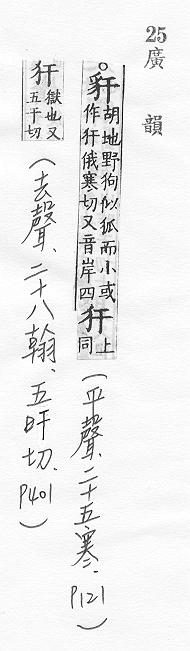 25
廣韻
豻胡地野狗似狐而小或作犴俄寒切又音岸四犴上同(平聲、二十五寒、P121)
犴獄也又五干切(去聲、二十八翰、五旰切、P401)